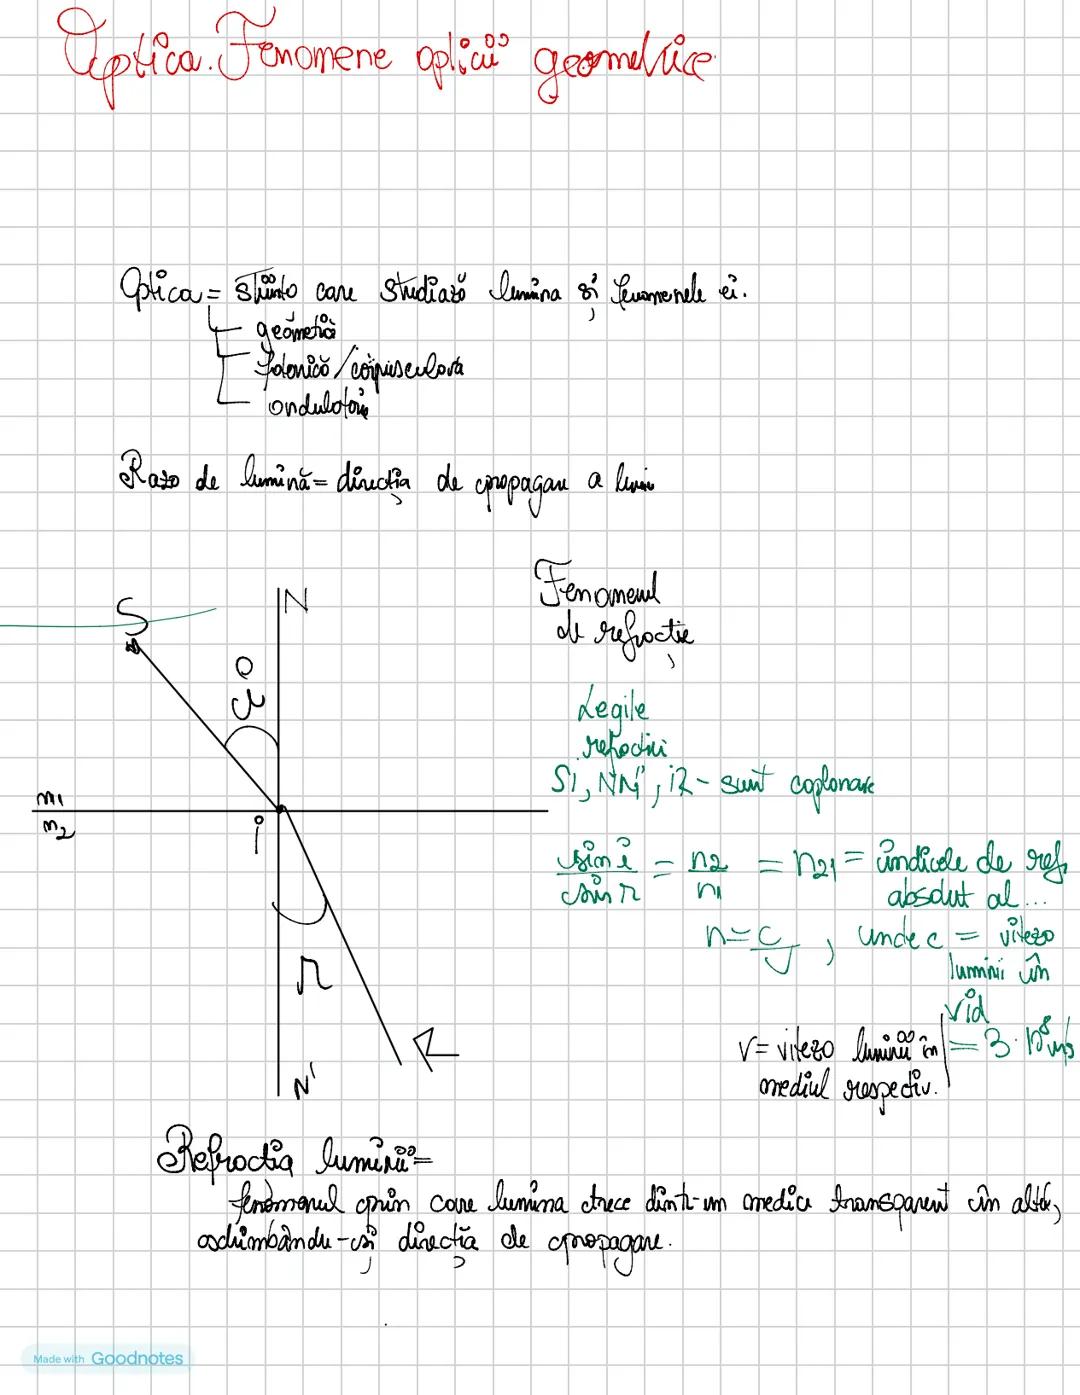 Optica. Fenomene opticii geometrice
Optica = știința care studiază lumina și fenomenele ei.
geometrică
fotonică/corpusculară
ondulatorie
Raza de lumină = direcția de propagare a luminii
Fenomenul
de refracție
S
N
i
Legile
refracției
SI, NN', IR - sunt coplonare
n1
n2
I
sin i / sin r = n2 / n1 = n21 = indicele de ref.
absolut al...
n = c/v, unde c = viteza
luminii în
vid
= 3·10⁸ m/s
r
R
N'
v = viteza luminii în
mediul respectiv.
Refracția luminii =
fenomenul prin care lumina trece dintr-un mediu transparent în altul,
schimbându-și direcția de propagare.
Made with Goodnotes